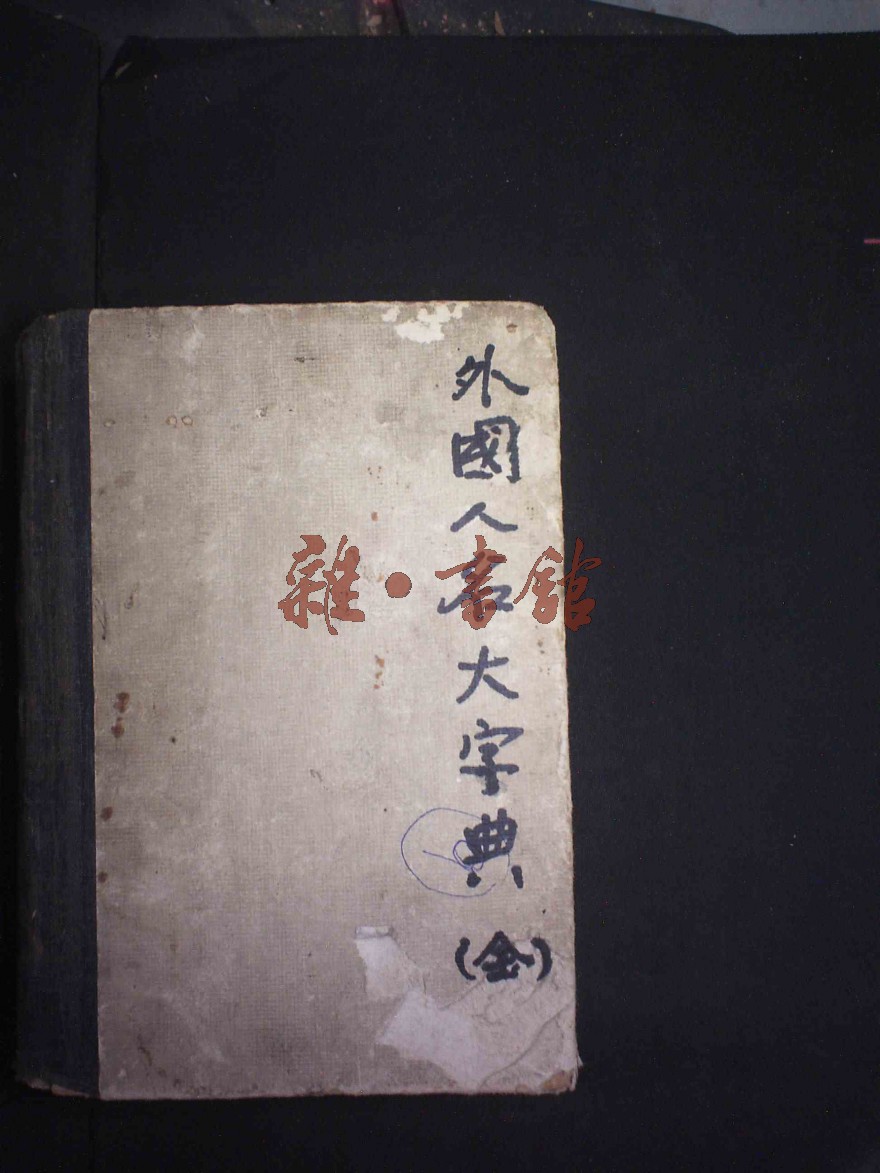 外國人名大字典
(全)
雜·書館